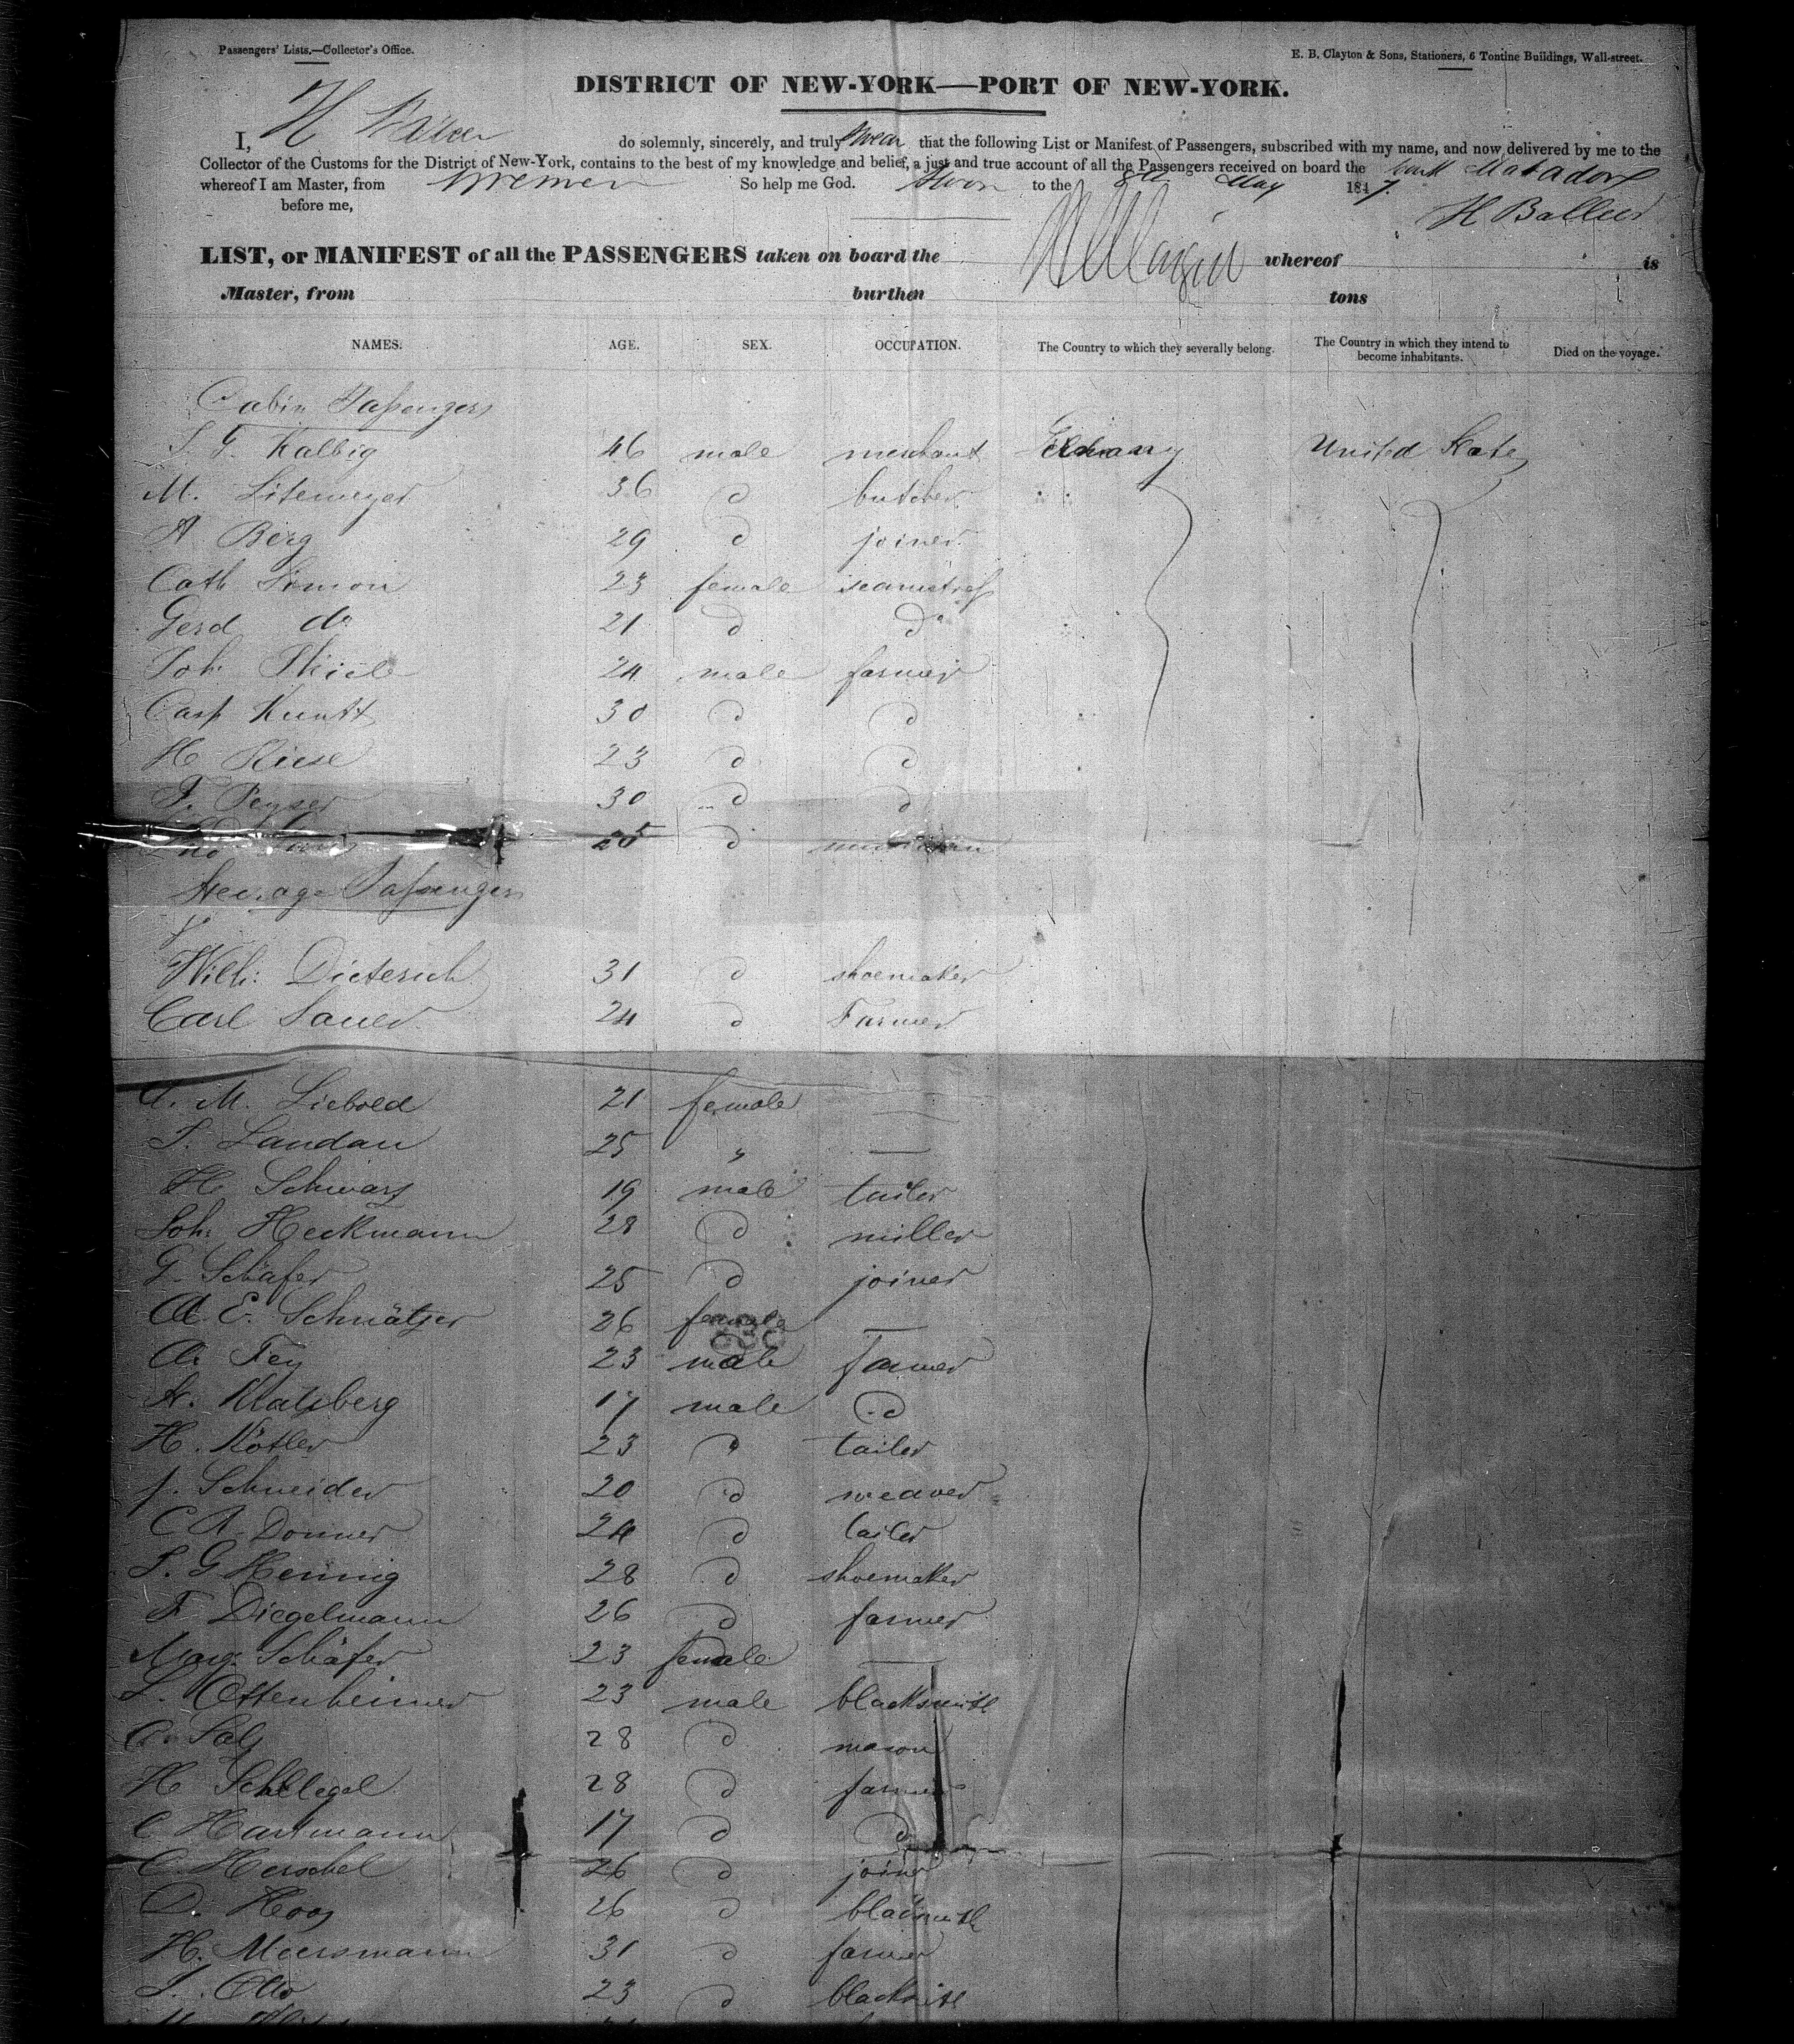 Passengers' Lists.—Collector's Office.
E. B. Clayton & Sons, Stationers, 6 Tontine Buildings, Wall-street.
DISTRICT OF NEW-YORK—PORT OF NEW-YORK.
I, H do solemnly, sincerely, and truly swear that the following List or Manifest of Passengers, subscribed with my name, and now delivered by me to the
Collector of the Customs for the District of New-York, contains to the best of my knowledge and belief, a just and true account of all the Passengers received on board the bark Matador
whereof I am Master, from Bremen So help me God. Sworn to the 8th May 1847.
before me,
H
LIST, or MANIFEST of all the PASSENGERS taken on board the whereof is
Master, from burthen tons
NAMES. AGE. SEX. OCCUPATION. The Country to which they severally belong. The Country in which they intend to become inhabitants. Died on the voyage.
Cabin Passengers
Kalbig 46 male merchant United States
M. 36 d butcher
A Berg 29 d joiner
Cath Simon 23 female seamstress
Gerd do 21 d do
Joh. Thiele 24 male farmer
Casp 30 d d
H 23 d d
F. Peyser 30 d d
25 d
Steerage Passengers
Wilh: Dieterich 31 d shoemaker
Carl Sauer 24 d Farmer
A. M. Liebold 21 female —
S. Landau 25 " —
H Schwarz 19 male tailer
Joh: Heckmann 28 d miller
G. Schäfer 25 d joiner
E. Schnätzer 26 female —
A. Fey 23 male farmer
Katzberg 17 male d
H. Kötler 23 " tailer
J. Schneider 20 d weaver
C A. Donner 24 d tailer
G Hennig 28 d shoemaker
F Diegelmann 26 d farmer
Marg: Schäfer 23 female —
L. Ottenheimer 23 male blacksmith
Salz 28 d mason
H Schlegel 28 d farmer
C Hartmann 17 d d
C. Herschel 26 d joiner
D. Hoos 26 d blacksmith
H. Meersmann 31 d farmer
Otto 23 d blacksmith